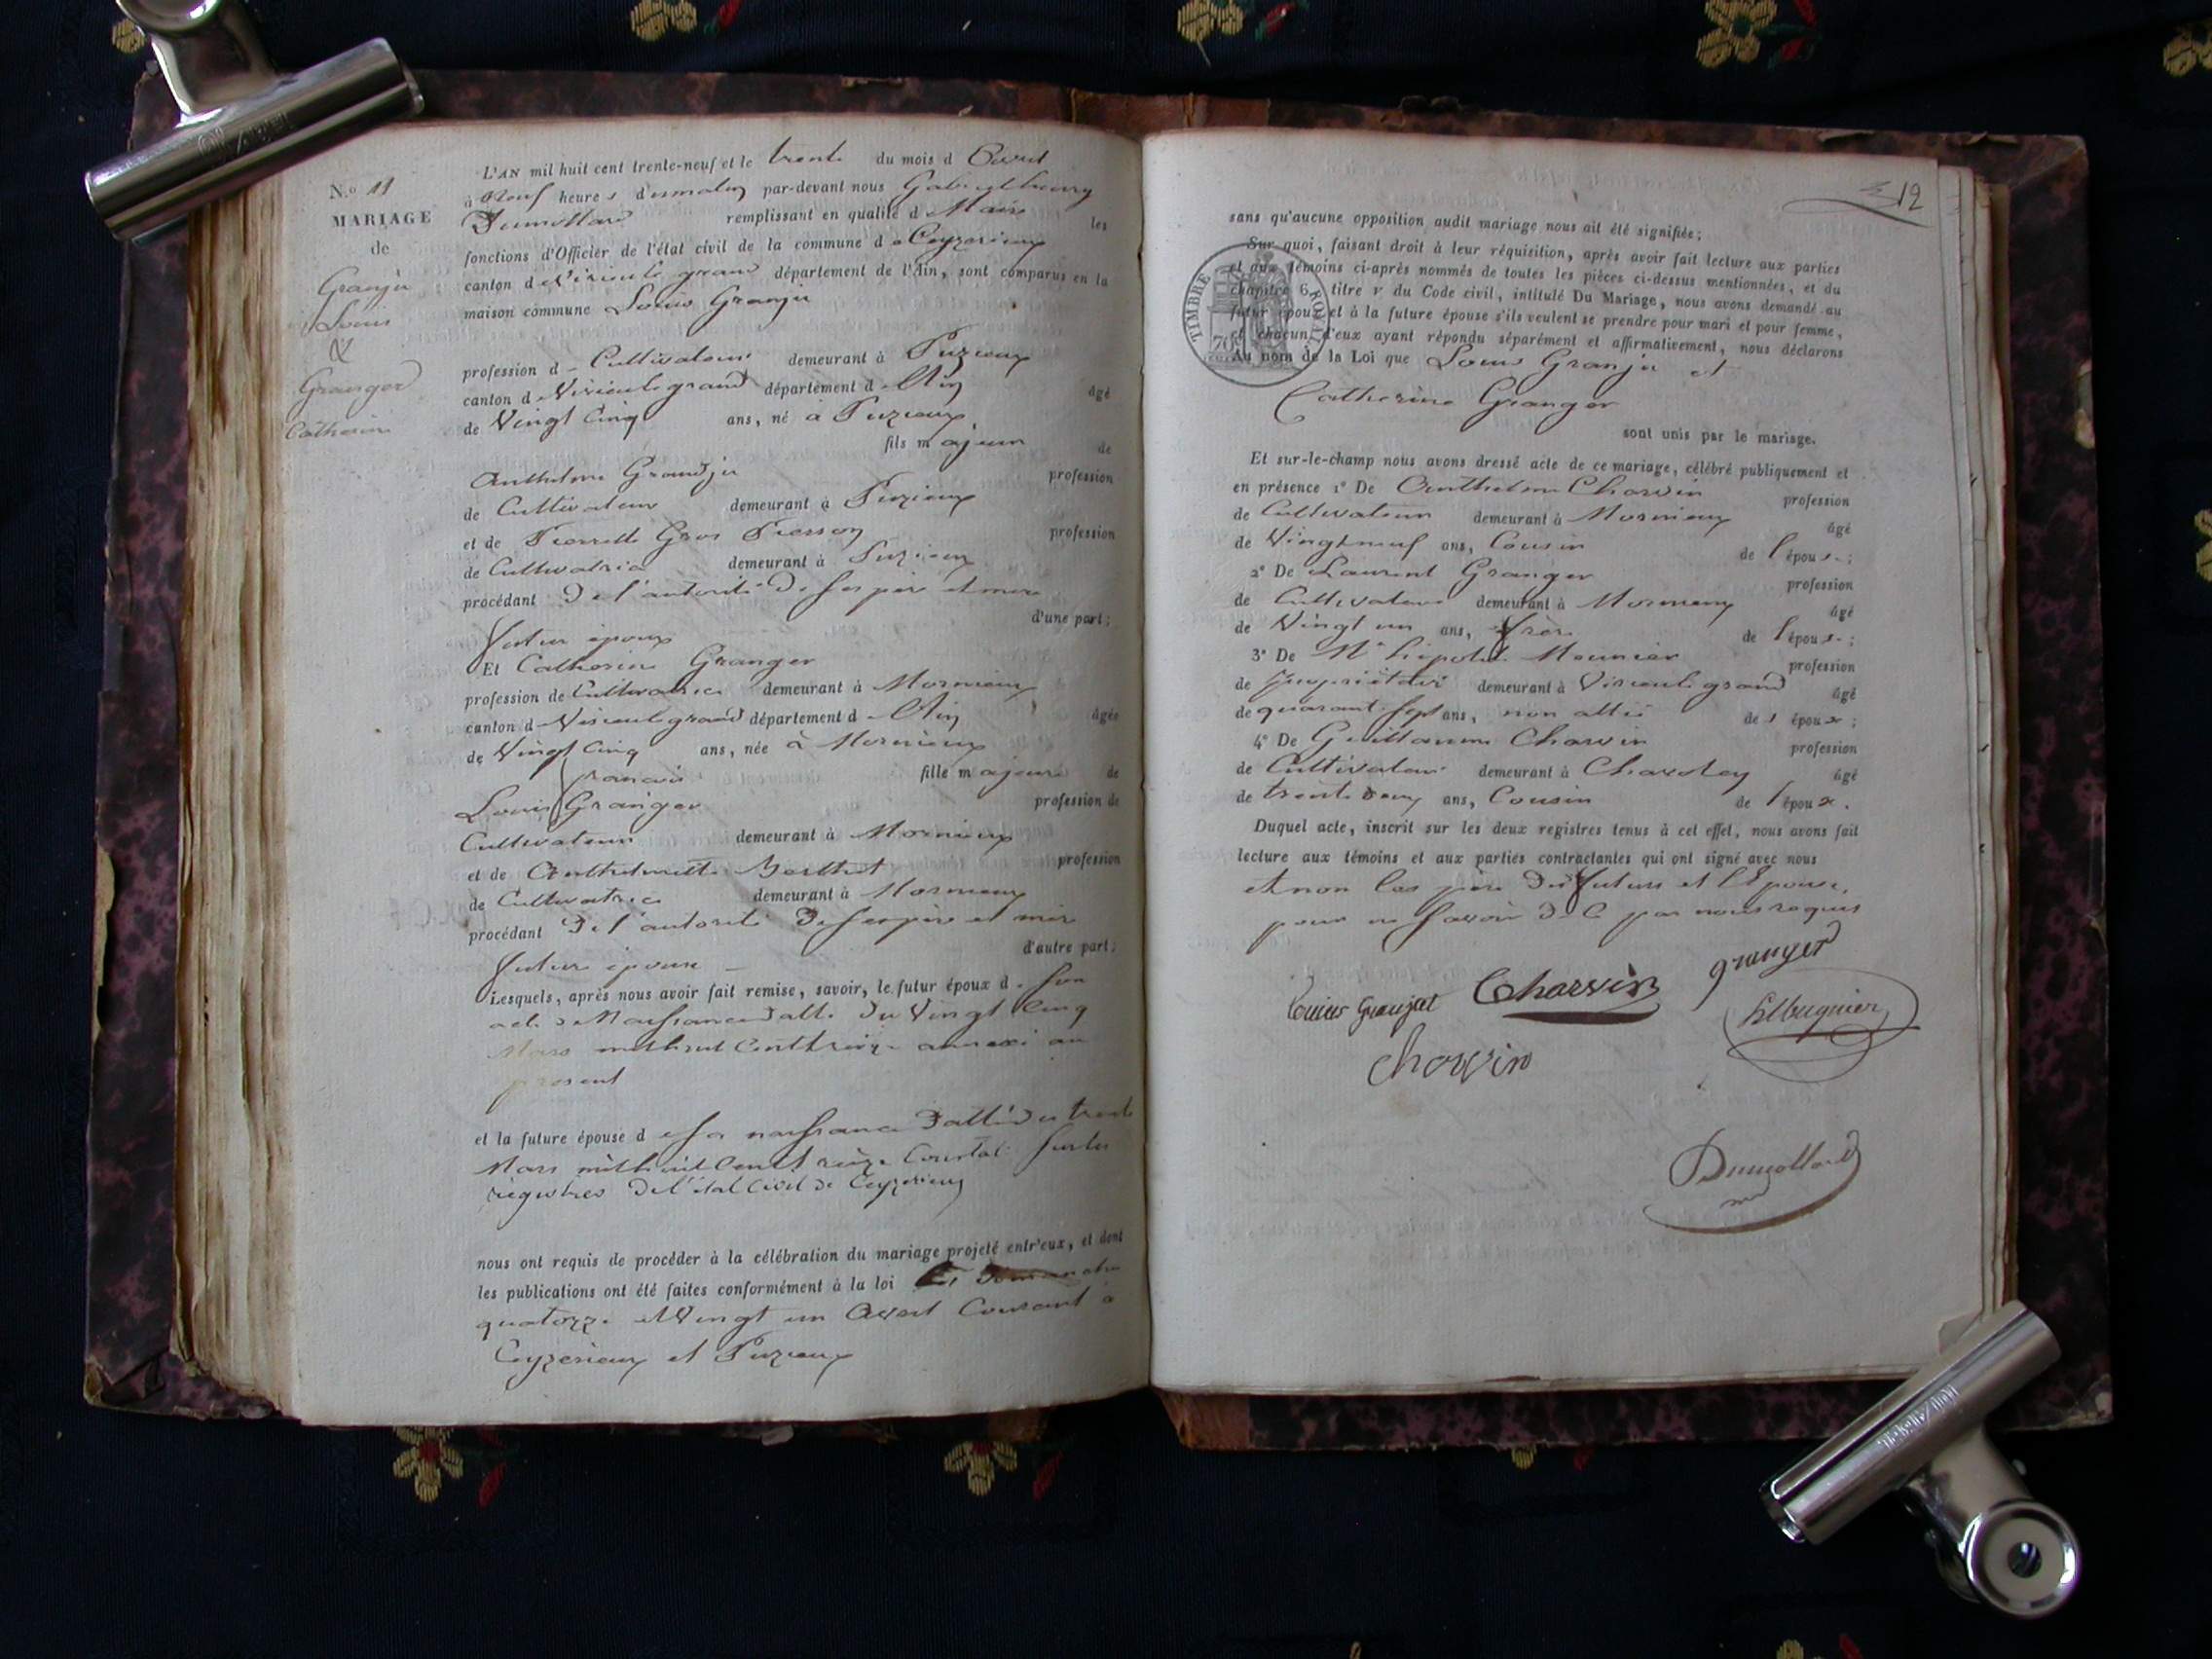 N.o 11
MARIAGE
de
Granju
Louis
&
Granger
Catherine
L'AN mil huit cent trente-neuf et le trente du mois d Avril
à Neuf heures du matin par-devant nous Gabriel
Dumollard remplissant en qualité d Maire les
fonctions d'Officier de l'état civil de la commune d e Ceyzerieux
canton de Virieu le grand département de l'Ain, sont comparus en la
maison commune Louis Granju
profession d Cultivateur demeurant à Puzieux
canton d Virieu le grand département d l'Ain âgé
de Vingt Cinq ans, né à Puzieux
fils majeur de
Anthelme Grandju profession
de Cultivateur demeurant à Puzieux
et de Pierrette Gros Pierson profession
de Cultivatrice demeurant à Puzieux
procédant de l'autorité de ses père et mère
d'une part;
futur époux
Et Catherine Granger
profession de Cultivatrice demeurant à Mornieux
canton d Virieu le grand département d l'Ain âgée
de Vingt Cinq ans, née à Mornieux
francois fille majeure de
Louis Granger profession de
Cultivateur demeurant à Mornieux
et de Anthelmette Berthet profession
de Cultivatrice demeurant à Mornieux
procédant de l'autorité de ses père et mère
d'autre part;
future épouse
Lesquels, après nous avoir fait remise, savoir, le futur époux d son
acte de Naissance datté du Vingt Cinq
Mars mil huit Cent treize annexé au
présent
et la future épouse d e sa naissance datté du trente
Mars mil huit Cent treize Constaté sur les
registres de l'état Civil de Ceyzerieux
nous ont requis de procéder à la célébration du mariage projeté entr'eux, et dont
les publications ont été faites conformément à la loi les dimanches
quatorze et Vingt un Avril Courant à
Ceyzerieux et Puzieux
12
sans qu'aucune opposition audit mariage nous ait été signifiée;
Sur quoi, faisant droit à leur réquisition, après avoir fait lecture aux parties
et aux témoins ci-après nommés de toutes les pièces ci-dessus mentionnées, et du
chapitre 6, titre v du Code civil, intitulé Du Mariage, nous avons demandé au
futur époux et à la future épouse s'ils veulent se prendre pour mari et pour femme,
et chacun d'eux ayant répondu séparément et affirmativement, nous déclarons
Au nom de la Loi que Louis Granju et
TIMBRE ROYAL
70
Catherine Granger
sont unis par le mariage.
Et sur-le-champ nous avons dressé acte de ce mariage, célébré publiquement et
en présence 1° De Anthelme Charvin profession
de Cultivateur demeurant à Mornieux âgé
de Vingt neuf ans, Cousin de l'épouse;
2° De Laurent Granger profession
de Cultivateur demeurant à Mornieux âgé
de Vingt un ans, frère de l'épouse;
3° De Mr hipolite Meunier profession
de propriétaire demeurant à Virieu le grand âgé
de quarante sept ans, non allié des époux;
4° De Guillaume Charvin profession
de Cultivateur demeurant à Chavoley âgé
de trente deux ans, Cousin de l'époux.
Duquel acte, inscrit sur les deux registres tenus à cet effet, nous avons fait
lecture aux témoins et aux parties contractantes qui ont signé avec nous
et non les père des futurs et l'Epouse,
pour ne savoir de ce par nous requis
Louis Granjat Charvin granger
Charvin
Dumollard